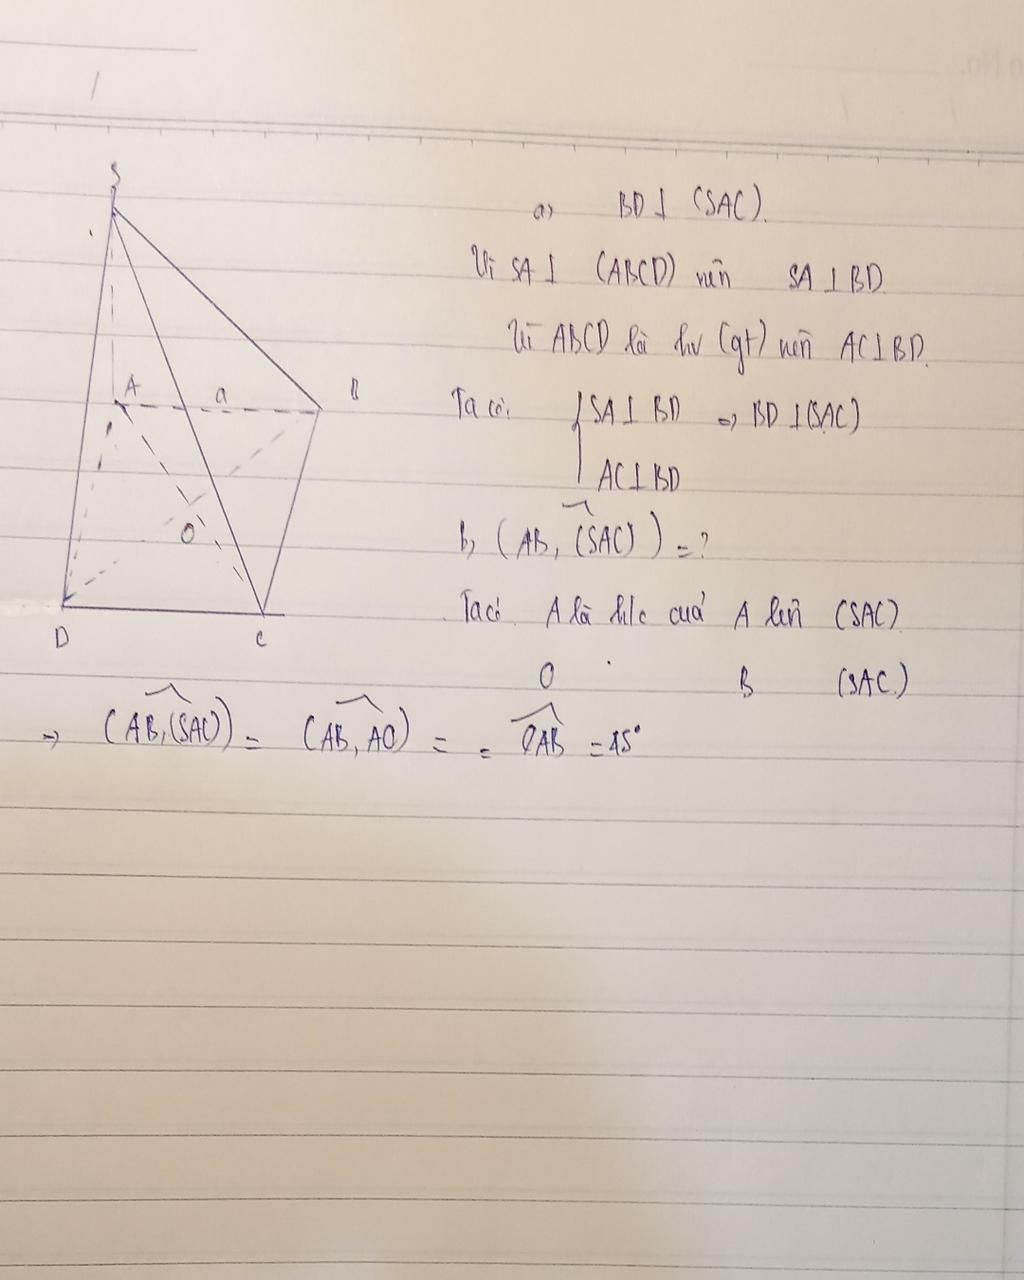 S
a) BD ⊥ (SAC).
Vì SA ⊥ (ABCD) nên SA ⊥ BD
Vì ABCD là hv (gt) nên AC ⊥ BD.
A a B
Ta có: { SA ⊥ BD => BD ⊥ (SAC)
AC ⊥ BD
O
b, (AB, (SAC)) = ?
D C
Ta có A là h/c của A lên (SAC)
O B (SAC)
=> (AB, (SAC)) = (AB, AO) = = OAB = 45°